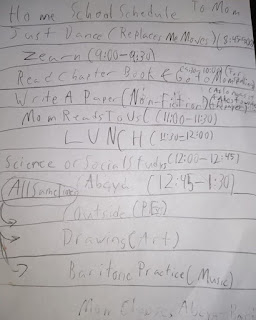 Home School Schedule To Mom
Just Dance (Replaces Me Moves) (8:45-9:00)
Zearn (9:00-9:30)
Read Chapter Book &
Write A Paper (Non-Fiction)
Mom Reads To Us (11:00-11:30)
LUNCH (11:30-12:00)
Science or Social Studys (12:00-12:45)
(All Same time) Abaya (12:45-1:30)
Outside (PE)
Drawing (Art)
Baritone Practice (Music)
Mom